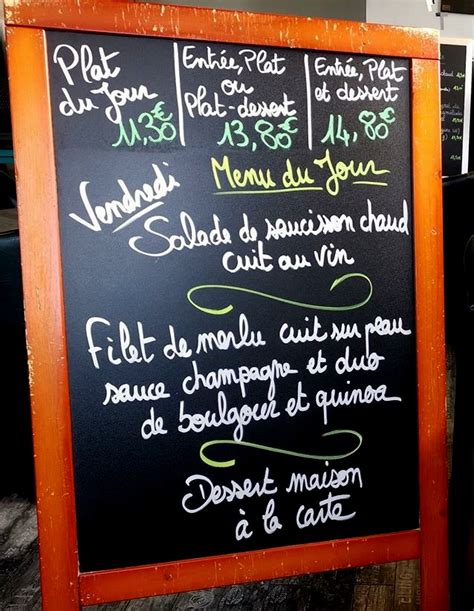 Plat
du Jour
11,30€
Entrée, Plat
ou
Plat-dessert
13,80€
Entrée, Plat
et dessert
14,80€
Menu du Jour
Vendredi
Salade de saucisson chaud
cuit au vin
Filet de merlu cuit sur peau
sauce champagne et duo
de boulgour et quinoa
Dessert maison
à la carte